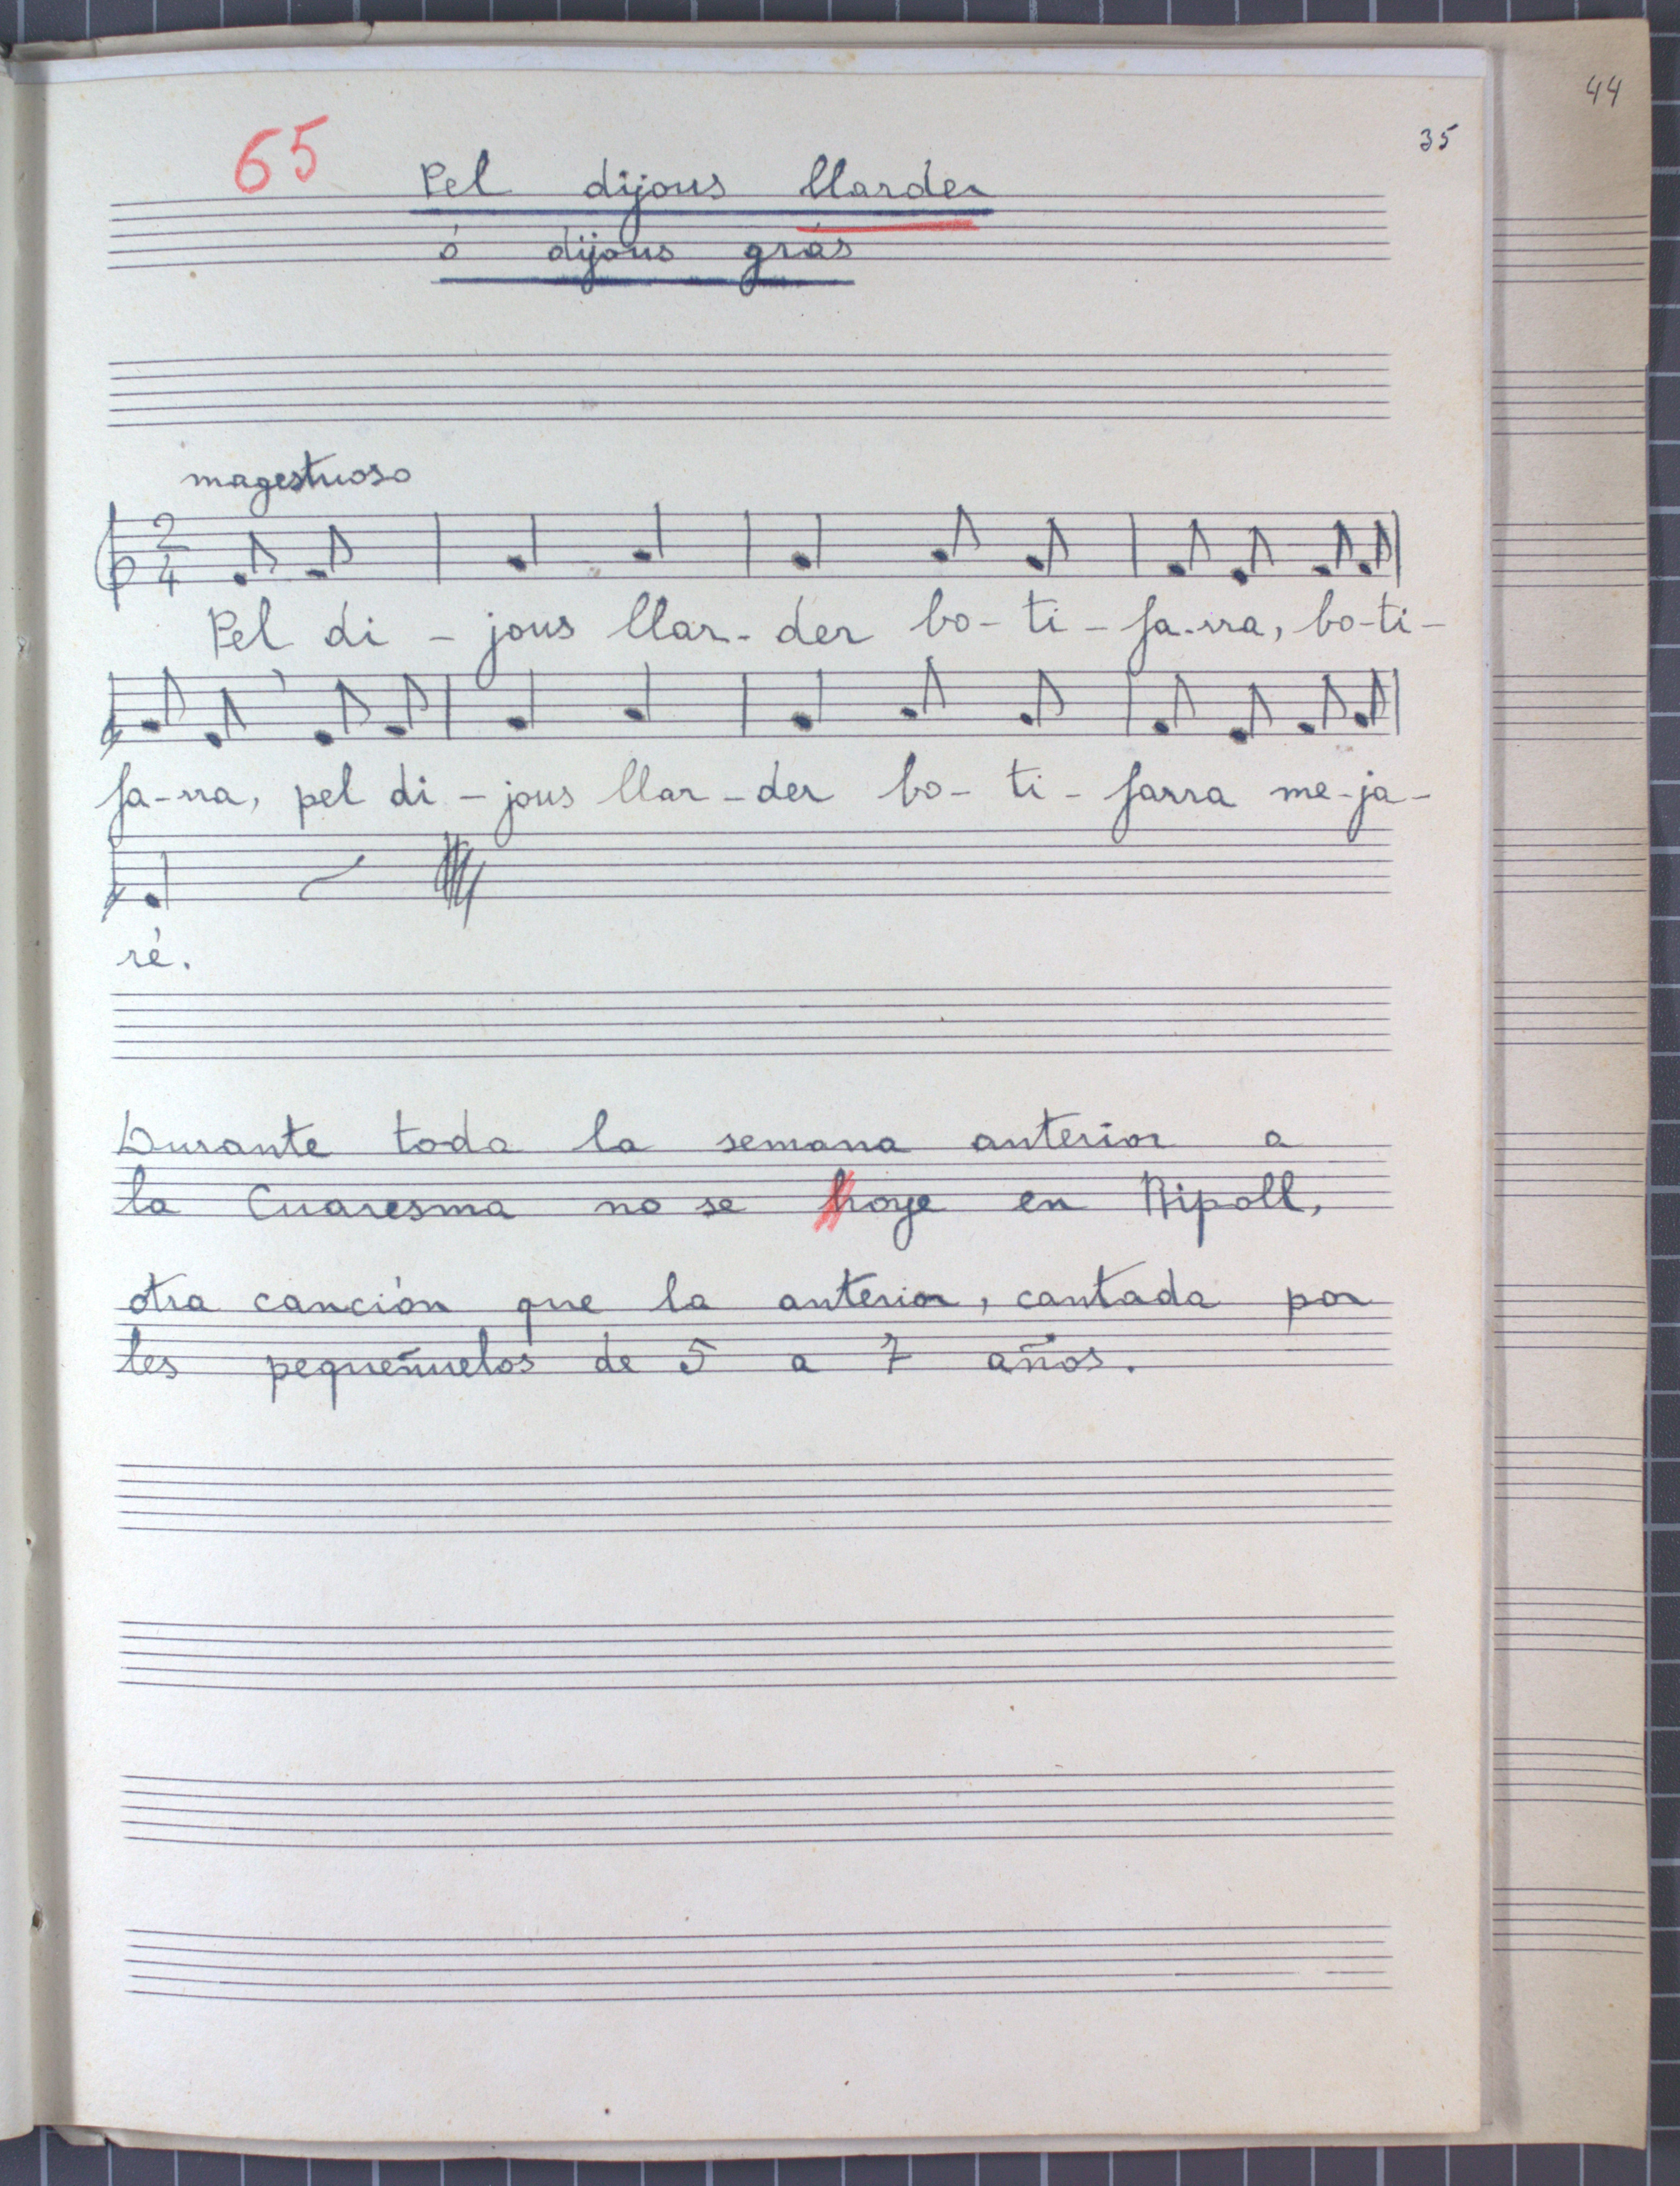 44
35
65
Pel dijous llarder
ó dijous gràs
magestuoso
2
4
Pel di - jous llar - der bo - ti - fa - rra, bo - ti -
fa - rra, pel di - jous llar - der bo - ti - farra me - ja -
ré.
Durante toda la semana anterior a
la Cuaresma no se hoye en Ripoll,
otra canción que la anterior, cantada por
les pequeñuelos de 5 a 7 años.